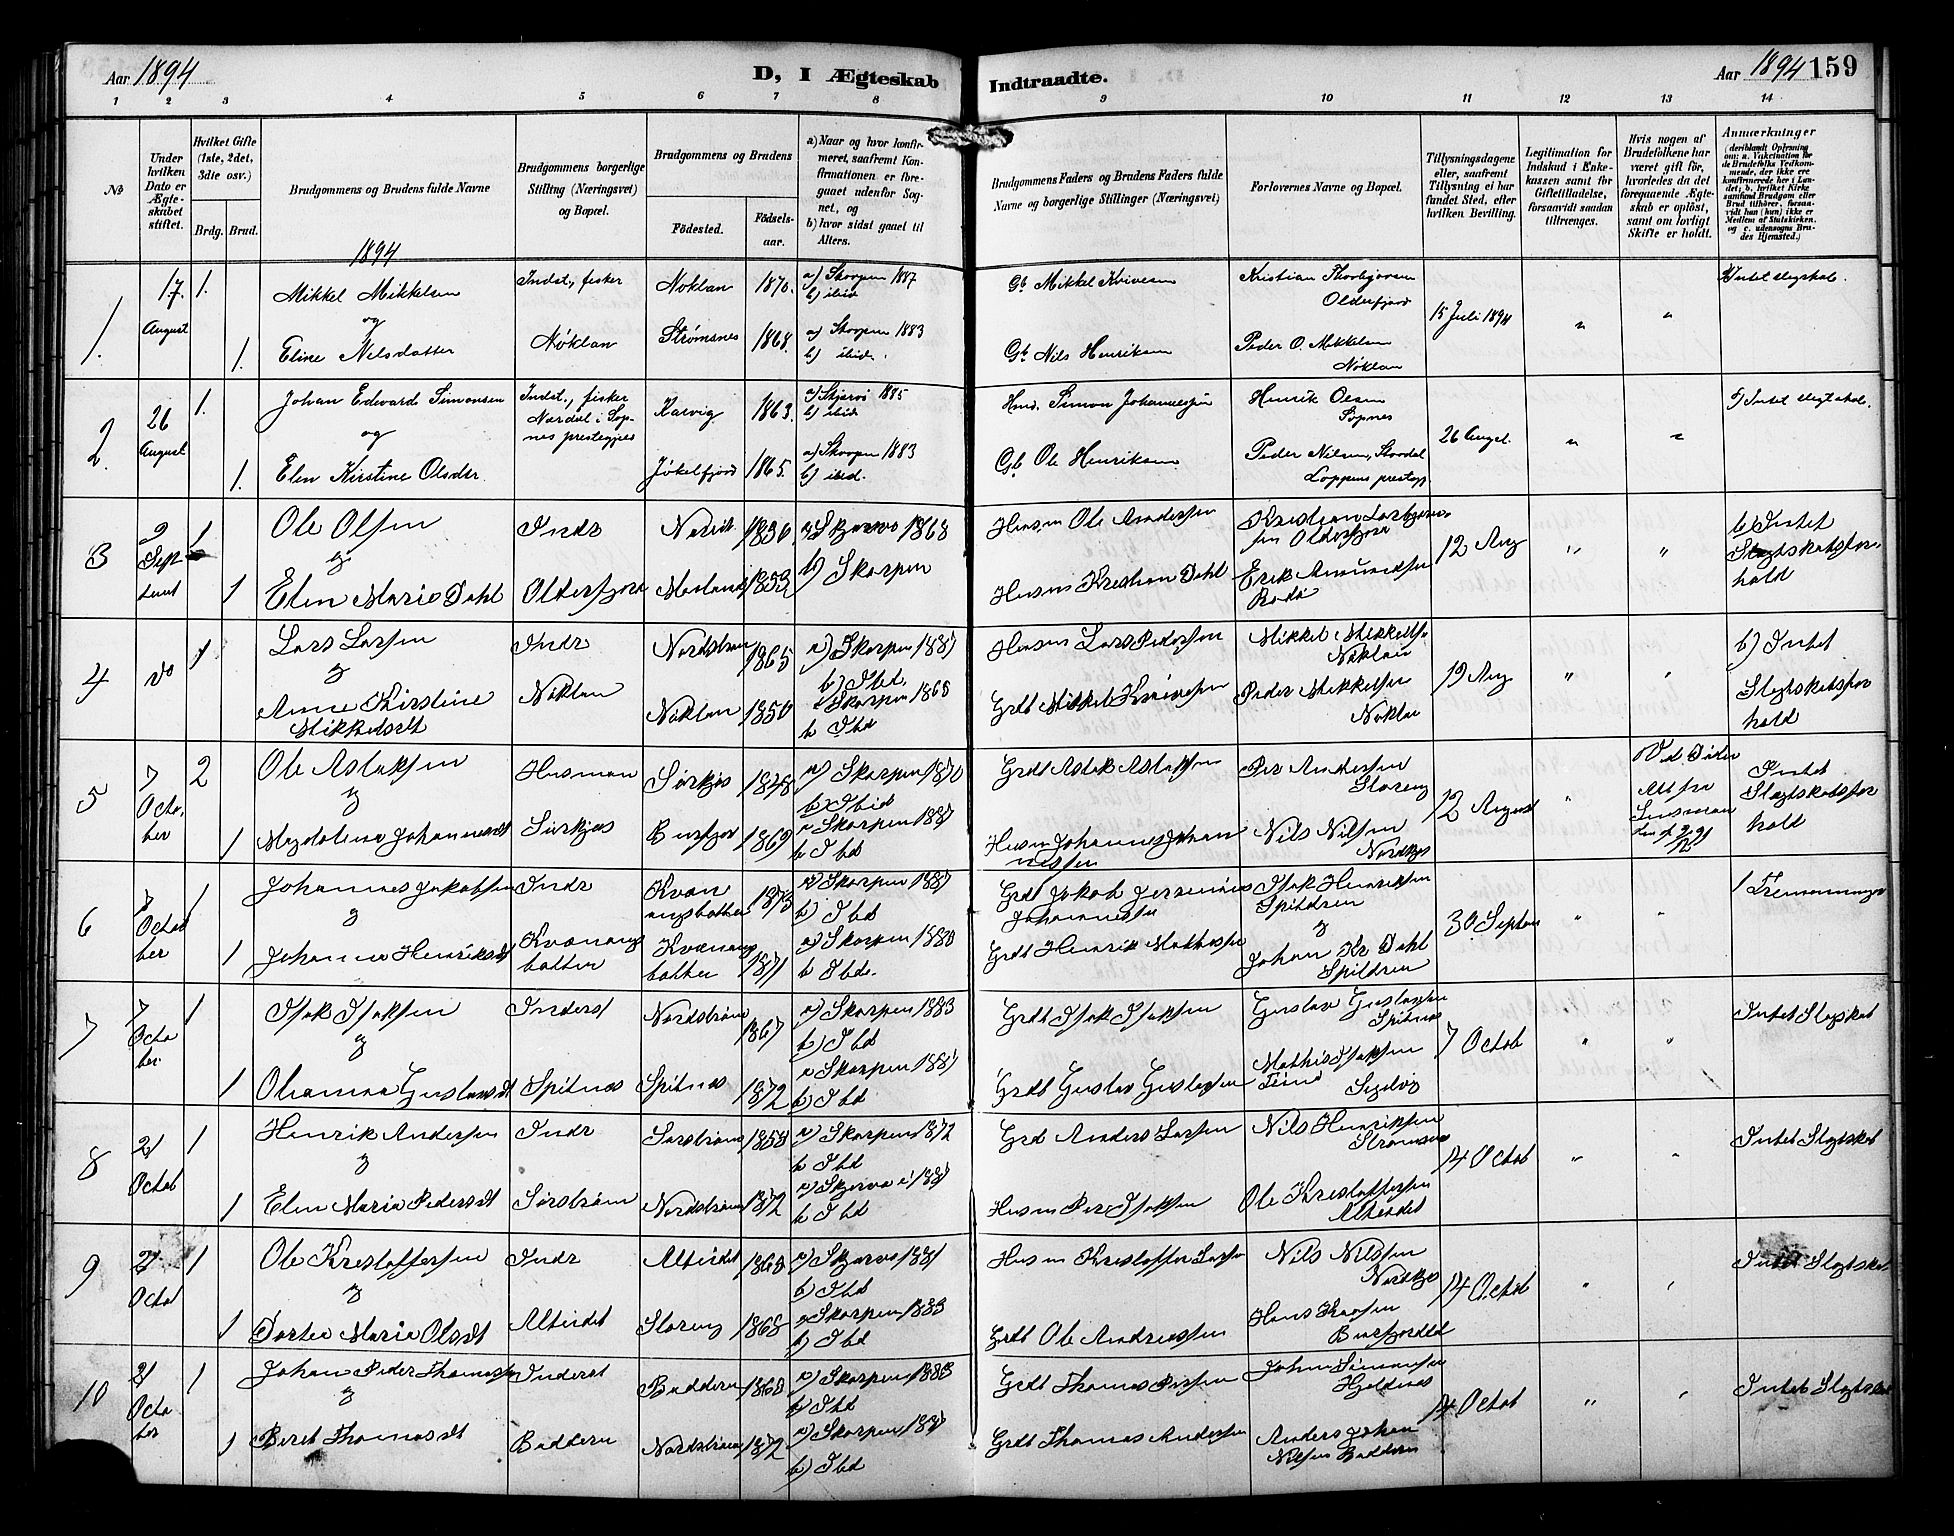 Aar 1894
D, I Ægteskab Indtraadte.
Aar 1894 159
1 2 3 4 5 6 7 8 9 10 11 12 13 14
No
Under hvilken Dato er Ægte-skabet stiftet.
Hvilket Gifte (1ste, 2det, 3die osv.)
Brdg. Brud.
Brudgommens og Brudens fulde Navne
Brudgommens borgerlige Stilling (Næringsvei) og Bopæl.
Brudgommens og Brudens
Fødested.
Fødsels-aar.
a) Naar og hvor konfir-meret, saafremt Kon-firmationen er fore-gaaet udenfor Sog-net, og
b) hvor sidst gaaet til Alters.
Brudgommens Faders og Brudens Faders fulde Navne og borgerlige Stillinger (Næringsvei)
Forlovernes Navne og Bopæl.
Tillysningsdagene eller, saafremt Tillysning ei har fundet Sted, efter hvilken Bevilling.
Legitimation for Indskud i Enke-kassen samt for Giftetilladelse, forsaavidt saadan tiltrænges.
Hvis nogen af Brudefolkene har været gift før, hvorledes da det foregaaende Ægte-skab er opløst, samt om lovligt Skifte er holdt.
Anmærkninger
(deriblandt Oplysning om: a. Vakcination for de Brudefolks Vedkom-mende, der ikke ere konfirmerede her i Lan-det; b. hvilket Kirke-samfund Brudgom eller Brud tilhører, forsaa-vidt han (hun) ikke er Medlem af Statskirken, og c. udensogns Bru-des Hjemsted.)
1894
1. 17 August 1. Mikkel Mikkelsen Indst., fisker Nøklan 1870. a) Skorpen 1887 b) ibid Gb Mikkel Kvivesen Kristian Thorbjørnsen Olderfjord 15 Juli 1894 " " Intet slegtskab.
og
1. Eline Nilsdatter Nøklan Strømsnes 1868. a) Skorpen 1883 b) ibid. Gb Nils Henriksen Peder O. Mikkelsen Nøklan
2. 26 August 1. Johan Edvard Simonsen Indst., fisker Nardal i Sop-nes prestegjeld Karvig 1863. a) Skjervø 1885 b) ibid Hmd. Simon Johannesen Henrik Olsen Sopnes 26 August. " " Intet slegtskab.
og
1. Elen Kirstine Olsdtr. Jøkelfjord 1865. a) Skorpen 1883 b) ibid. Gb. Ole Henriksen Peder Nilsen, Stordal Loppens prestegj.
3 2 September 1 Ole Olsen Indr 1836. a) Skjervø 1868 Husm Ole Andersen Olderfjord 12 Aug " " b) Intet Slegtskabsforhold
1 Elen Marie Dahl Olderfjord 1853 b) Skorpen Husm Kristian Dahl
4 do 1 Lars Larsen Indr Nordstrøm 1865 a) Skorpen 1887 b) Ibd. Husm Lars Pedersen Mikkel Mikkelse Nøklan 19 Aug " " b) Intet Slegtskabsforhold
Anne Kirstine Mikkelsdt Nøklan Nøklan 1850 a Skorpen 1868 b Ibd Grdb Mikkel Kvivesen Peder Mikkelsen Nøklan
5 7 October 2 Ole Aslaksen Husman Sørkjos 1828 a) Skorpen 1870 b) Ibid Grdb Aslak Aslaksen Per Andersen Storeng 12 August " Intet Slegtskabsforhold
1 Magdalena Johannesdt Sørkjos Burfjord 1869 a Skorpen 1887 b Ibd Husm Johannes Johannessen Nils Nilsen Nordkjos
6 7 October 1 Johannes Jakobsen Indr Kvænangsbotten 1873 a) Skorpen 1887 b) Ibd Grdb Jakob Johannesse Isak Henriksen Spildren 30 Septem " " Fremmninger
1 Johanna Henriksdt Kvænangsbotten Kvænangsbotten 1871 a) Skorpen 1888 b Ibd. Grdb Henrik Johan Kr Dahl Spildren
7 7 October 1 Isak Isaksen Inderst Nordstrøm 1867 a) Skorpen 1883 b) Ibd Grdb Isak Isaksen Gustav Gustavsen Spitnes 7 Octob " " Intet Slegskab
1 Oleanna Gustavsdt Spitnes Spitnes 1872 a Skorpen 1887 b) Ibd Grdb Gustav Gustavsen Mathis Isaksen Segelvig
8 21 Octob 1 Henrik Andersen Indr Sørstrøm 1858 a) Skorpen 1872 b Ibd Grd Anders Larsen Nils Henriksen Strømsnes 14 Octob " " Intet Slegtskab
1 Elen Maria Pedersdt Sørstrøm Nordstrøm 1872 a) Skjervø i 1887 b Ibd Husm Per Isaksen Ole Kristoffersen Alteidet
9 21 Octob 1 Ole Kristoffersen Indr Alteidet 1868 a) Skjervø 1881 b) Ibd Husm Kristoffer Larsen Nils Nilssen Nordkjos 14 Octob " " Intet Slegtskab
1 Dortea Maria Olsdt Alteidet Storeng 1868 a) Skorpen 1883 b) Ibd Grdb Ole Andreassen Hans Burfjordd
10 21 October 1 Johan Peder Thomassen Inderst Baddern 1868 a) Skorpen 1883 b) Ibd Grdb Thomas Persen Johan Simonsen 14 Octob " " Intet Slegtskab
1 Beret Thomasdt Baddern Nordstrøm 1872 a) Skorpen 1887 b) Ibd Grdb Thomas Andersen Anders Johan Nilsen Baddern